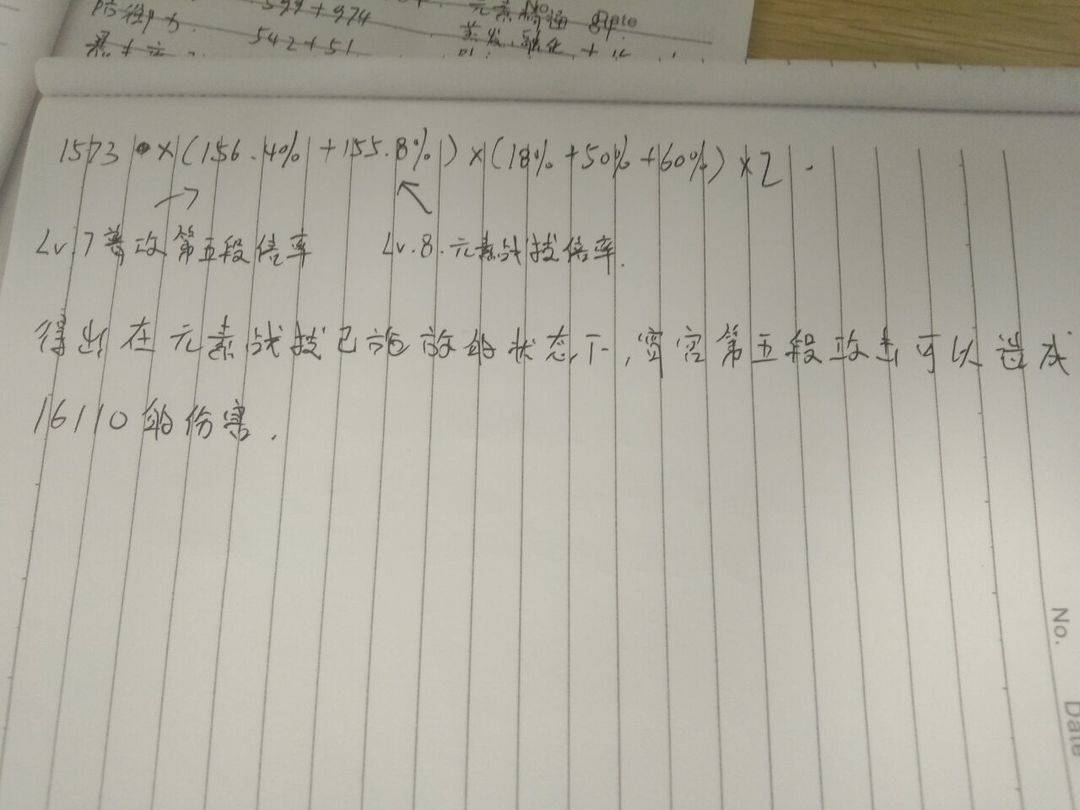 599+974
542+51
1573 × (156.4% + 155.8%) × (18% + 50% + 60%) × 2
Lv.7 普攻第五段倍率 Lv.8.元素战技倍率.
得出在元素战技已施放的状态下,宵宫第五段攻击可以造成
16110的伤害.
No.
Date